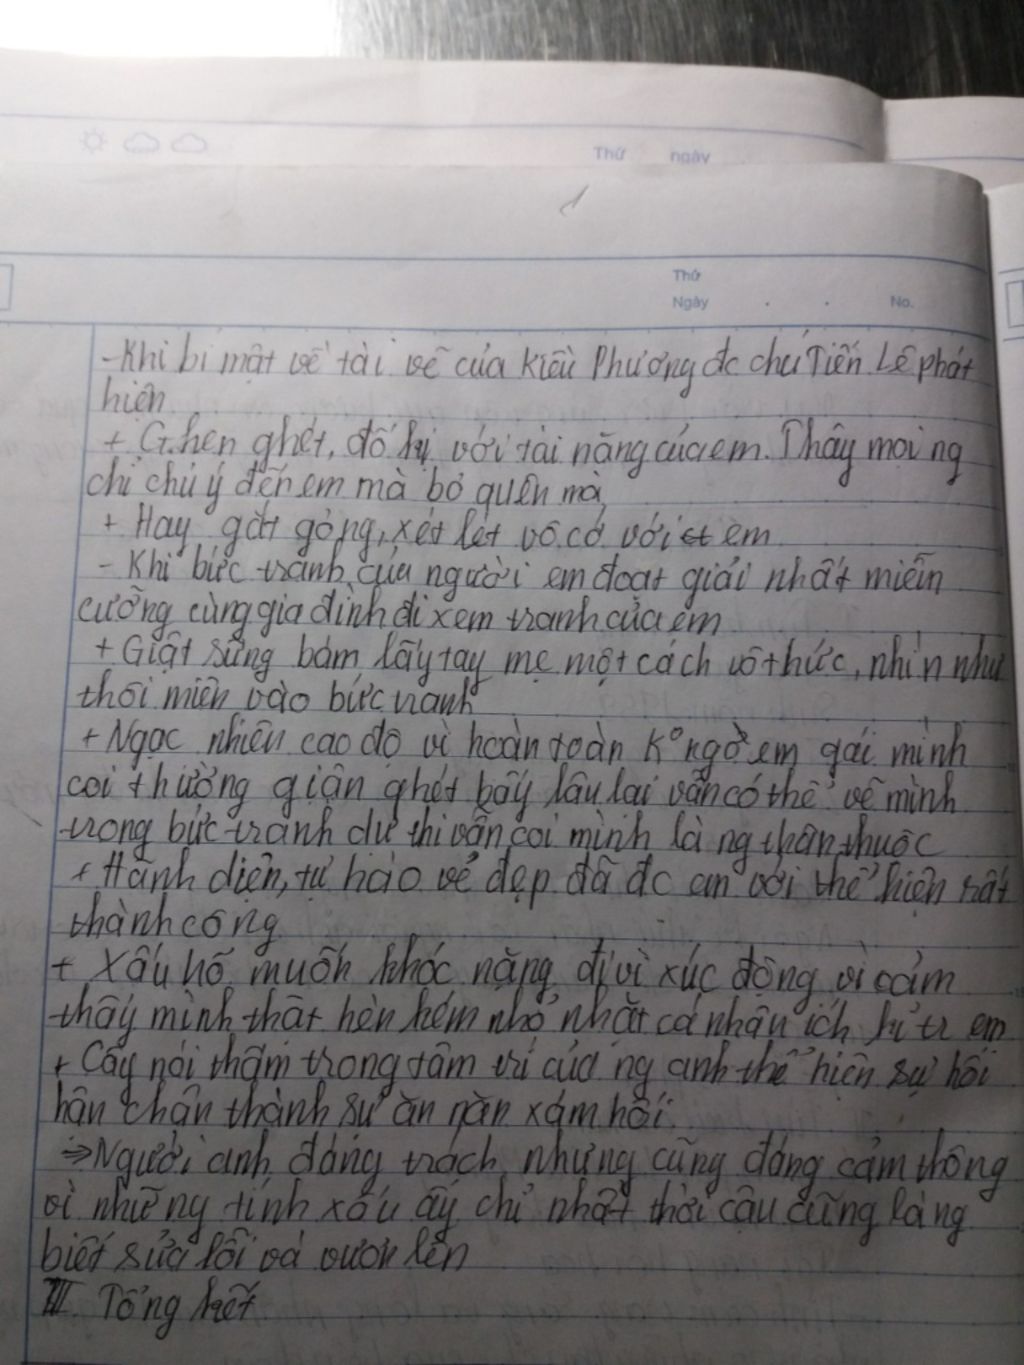 Thứ ngày
Thứ
Ngày . . No.
-Khi bí mật về tài vẽ của Kiều Phương đc chú Tiến Lê phát
hiện
+ Ghen ghét, đố kị với tài năng của em. Thấy mọi ng
chỉ chú ý đến em mà bỏ quên mà
+ Hay gắt gỏng, xét lét vô cớ với em
- Khi bức tranh của người em đoạt giải nhất miễn
cưỡng cùng gia đình đi xem tranh của em
+ Giật sững bám lấy tay mẹ một cách vô thức, nhìn như
thôi miên vào bức tranh
+ Ngạc nhiên cao độ vì hoàn toàn K° ngờ em gái mình
coi thường giận ghét bấy lâu lại vẫn có thể vẽ mình
trong bức tranh dự thi vẫn coi mình là ng thân thuộc
+ Hãnh diện, tự hào vẻ đẹp đã đc em với thể hiện rất
thành công
+ Xấu hổ muốn khóc nặng đi vì xúc động vì cảm
thấy mình thật hèn kém nhỏ nhặt cá nhân ích kỉ tr em
+ Cây nói thầm trong tâm trí của ng anh thể hiện sự hối
hận chân thành sự ăn năn xám hối.
⇒ Người anh đáng trách nhưng cũng đáng cảm thông
vì những tính xấu ấy chỉ nhất thời cậu cũng là ng
biết sửa lỗi và vươn lên
III Tổng kết